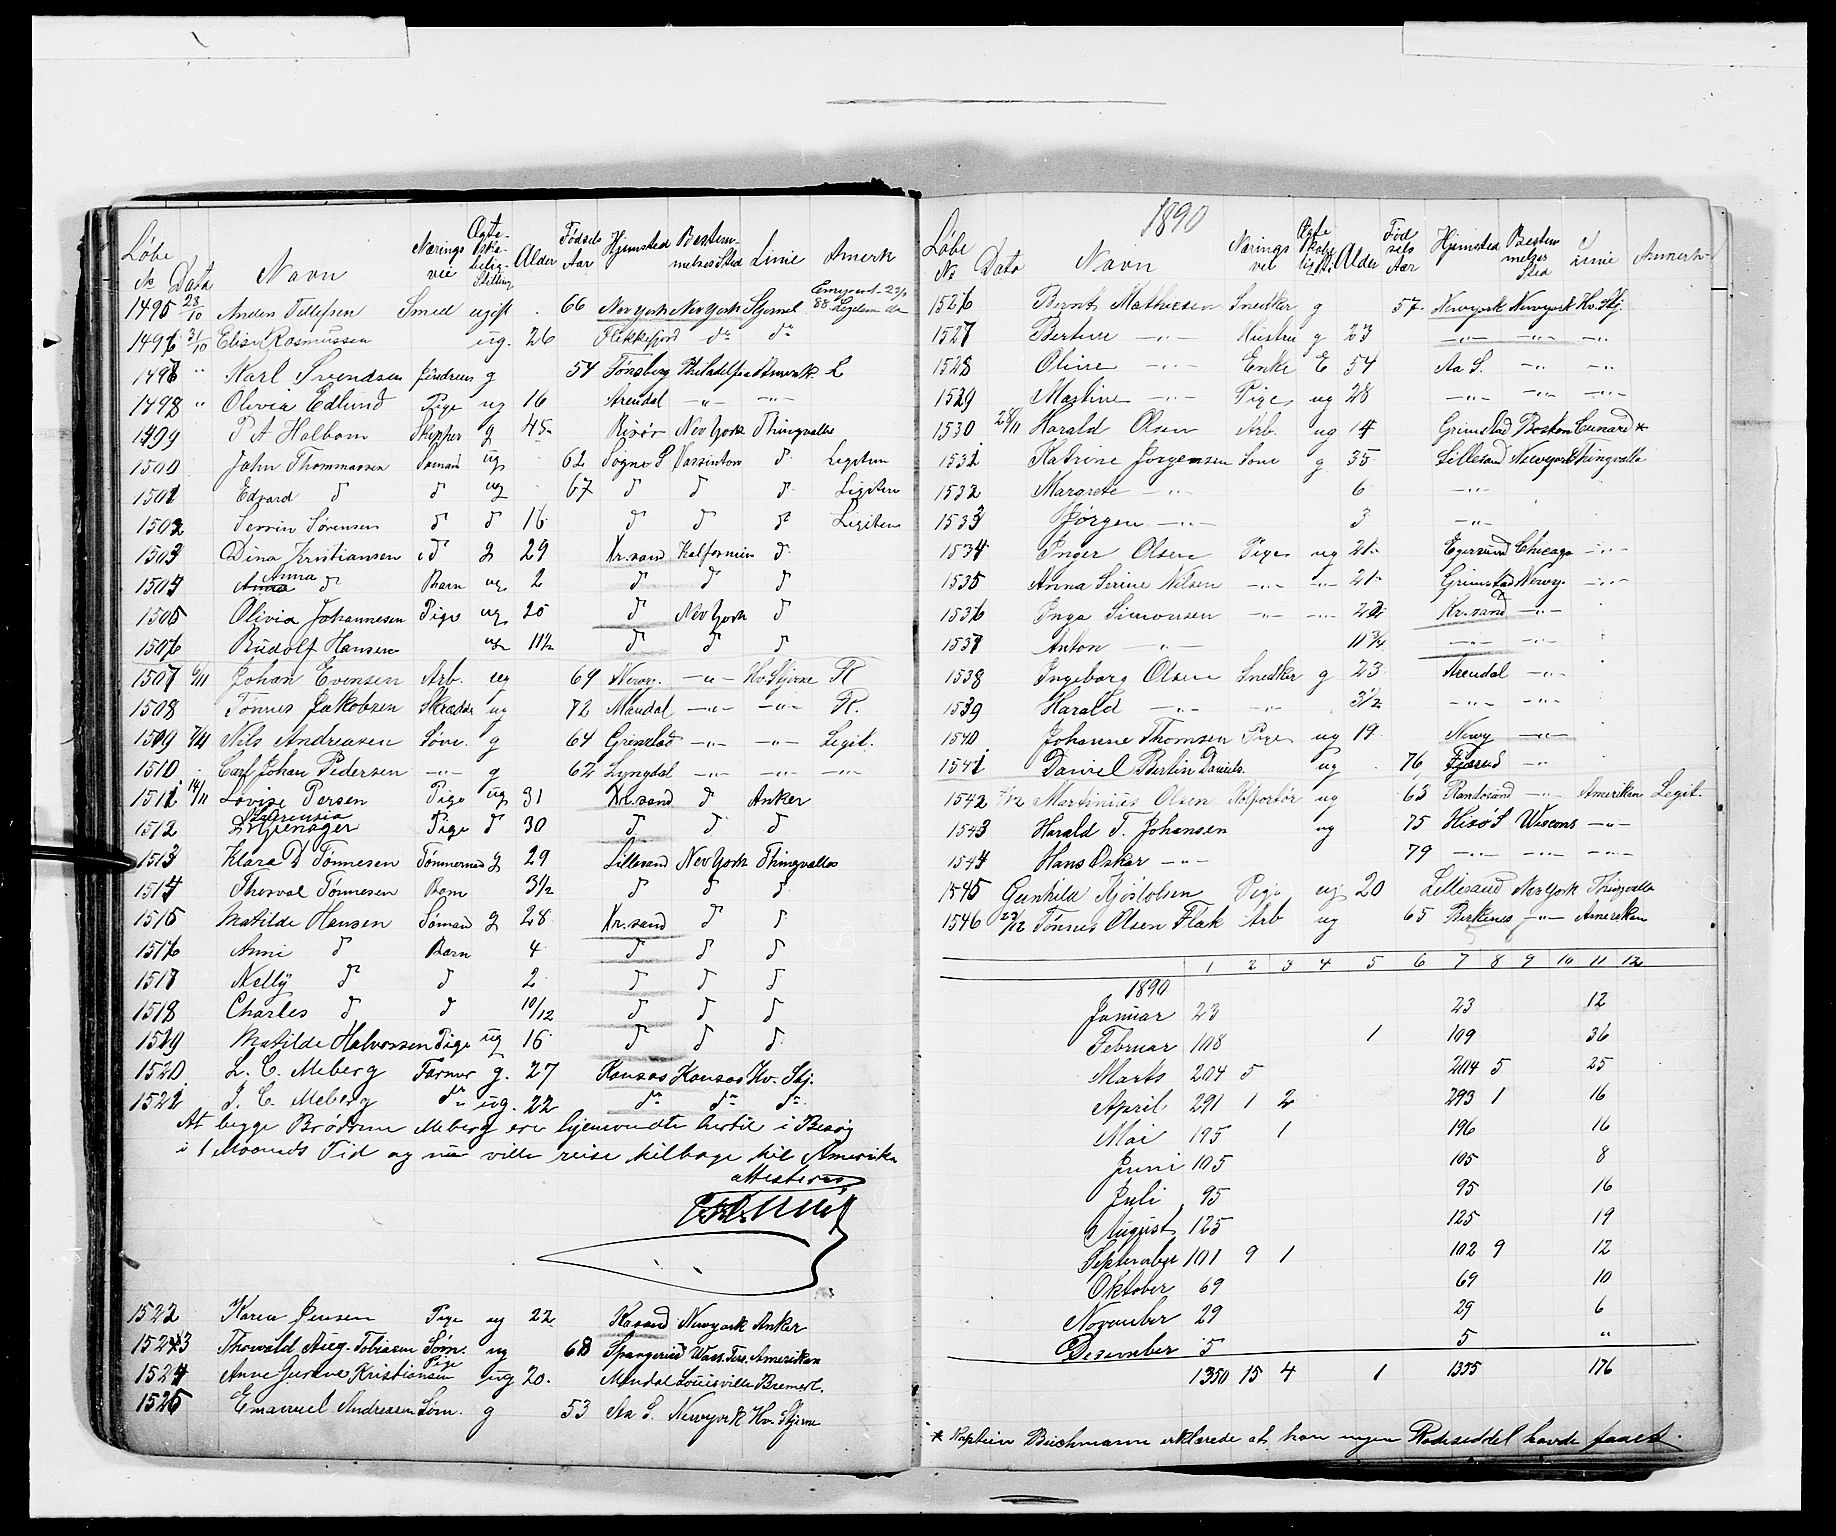 Løbe № Data Navn Nærings vei Ægte- skabe- lig- Stilling Alder Fødsels Aar Hjemsted Bestem- melses Sted Linie Anmerk
1495 28/10 Anders Tellefsen Smed ugift 66 New york New York Stjernel
1496 31/10 Elise Rasmussen ug. 26 Flekkefjord do do
1497 " Karl Svendsen g 54 Tønsberg Philadelfia Amerik. L
1498 " Olivia Edlund Pige ug 16 Arendal -"- -"-
1499 P A Halbom Skipper g 45 Risør New York Thingvalla
1500 John Thommassen Sømand ug 62 Søgne S Vassinton d Legitim
1501 Edvard d d ug 67 d d d Legitim
1502 Servin Sørensen d d 16 d d d Legitim
1503 Dina Kristiansen d g 29 Kr.sand Kalfornien d
1504 Anna d Barn ug 2 d d d
1505 Olivia Johannesen Pige ug 20 d New York d
1506 Rudolf Hansen ug 11½ d d d
1507 6/11 Johan Evensen Arb. ug 69 Newy. -"- Hv Stjerne R
1508 Tønnes Jakobsen Skrædder ug 72 Mandal -"- -"- R.
1509 7/11 Nils Andreasen Søm. g 64 Grimstad -"- -"- Legit.
1510 Carl Johan Pedersen -"- g 62 Lyngdal -"- -"- -"-
1511 14/11 Lovise Persen Pige ug 31 Kr.sand d Anker
1512 Pige d 30 d d d
1513 Klara D Tønnesen Tømmermd g 29 Lillesand New York Thingvalla
1514 Thorval Tønnesen Barn 3½ d d d
1515 Matilde Hansen Sømand g 28 Kr.sand d d
1516 Anni d Barn 4 d d d
1517 Nelly d d 2 d d d
1518 Charles d d 10/12 d d d
1519 Matilde Halvorssen Pige ug 16 d d d
1520 L. C. Meberg Farmer g. 27 Kansas Kansas Hv. Stj.
1521 J. C. Meberg do ug. 22 do do do
At begge Brødrene Meberg ere hjemvendte hertil i Besøg
i 1 Maaneds Tid og nu ville reise tilbage til Amerika
attesteres
1522 Karen Jensen Pige ug 22 Kr.sand Newyork Anker
1523 Thorvald Aug. Tobiasen Søm. ug 68 Spangereid Was. Ters. Amerikan
1524 Anne Gurine Kristiansen Pige ug 20. Mandal Louisville Bremerl.
1525 Emanuel Andreasen Søm. g 53 Aa S. Newyork Hv. Stjerne
1890
Løbe № Dato Navn Nærings vei Ægte skabe lig St. Alder Fød sels Aar Hjemsted Bestem melses Sted Linie Anmerk.
1526 Bernt Mathiesen Snedker g 57 Newyork Newyork Hv. Stj.
1527 Bertine -"- Hustru g 23 -"- -"- -"-
1528 Oline -"- Enke E 54 Aa S. -"- -"-
1529 Martine -"- Pige ug 28 -"- -"- -"-
1530 28/11 Harald Olsen Arb. ug 17 Grimstad Boston Cunard *
1531 Katrine Jørgensen Søm g 35 Lillesand Newyork Thingvalla
1532 Margrete -"- 6 -"-
1533 Jørgen -"- 3 -"-
1534 Inger Olsen Pige ug 21 Egersund Chicago -"-
1535 Anna Serine Nilsen -"- -"- 21 Grimstad Newy. -"-
1536 Inga Simonsen -"- -"- 22 Kr.sand -"-
1537 Anton -"- 11¾ -"- -"-
1538 Ingeborg Olsen Snedker g 23 Arendal -"-
1539 Harald -"- -"- 3½ -"- -"-
1540 Johanne Thomsen Pige ug 19 Newy -"-
1541 Daniel Bertin Daniels. ug 76 -"-
1542 Martinius Olsen Kolportør ug 63 Randøsund -"- Amerikan Legit.
1543 Harald T. Johansen ug 75 Hisø S Wiscons -"-
1544 Hans Oskar -"- 79 -"- -"- -"-
1545 Gunhild Kjostolsen Pige ug 20 Lillesand New York Thingvalla
1546 23/12 Tønnes Olsen Flak Arb ug 65 Birkenes -"- Amerikan
1 2 3 4 5 6 7 8 9 10 11 12
1890
Januar 23 23 12
Februar 108 1 109 36
Marts 204 5 204 5 25
April 291 1 2 293 1 16
Mai 195 1 196 16
Juni 105 105 8
Juli 95 95 16
August 125 125 19
September 101 9 1 102 9 12
Oktober 69 69 10
November 29 29 6
Desember 5 5 "
1350 15 4 1 1355 176
* Kaptein Buchmann erklærede at han ingen Rodeseddel havde faaet.